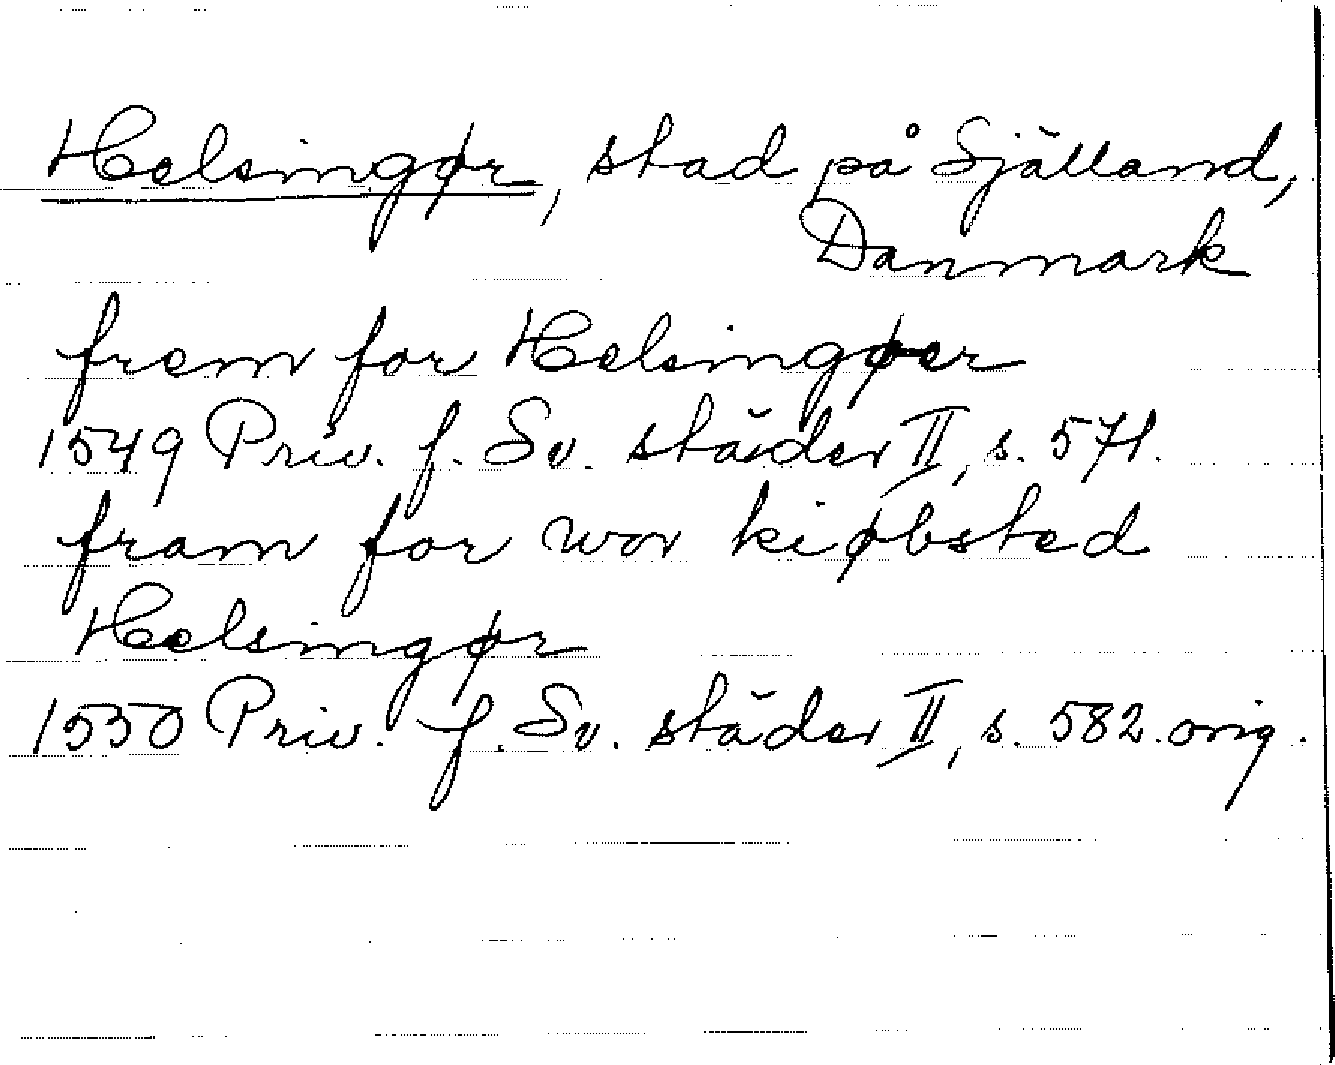 Helsingør, stad på Själland,
Danmark
frem for Helsingøer
1549 Priv. f. Sv. städer II, s. 571.
fram for wor kiøbsted
Helsingør
1550 Priv. f. Sv. städer II, s. 582. orig.